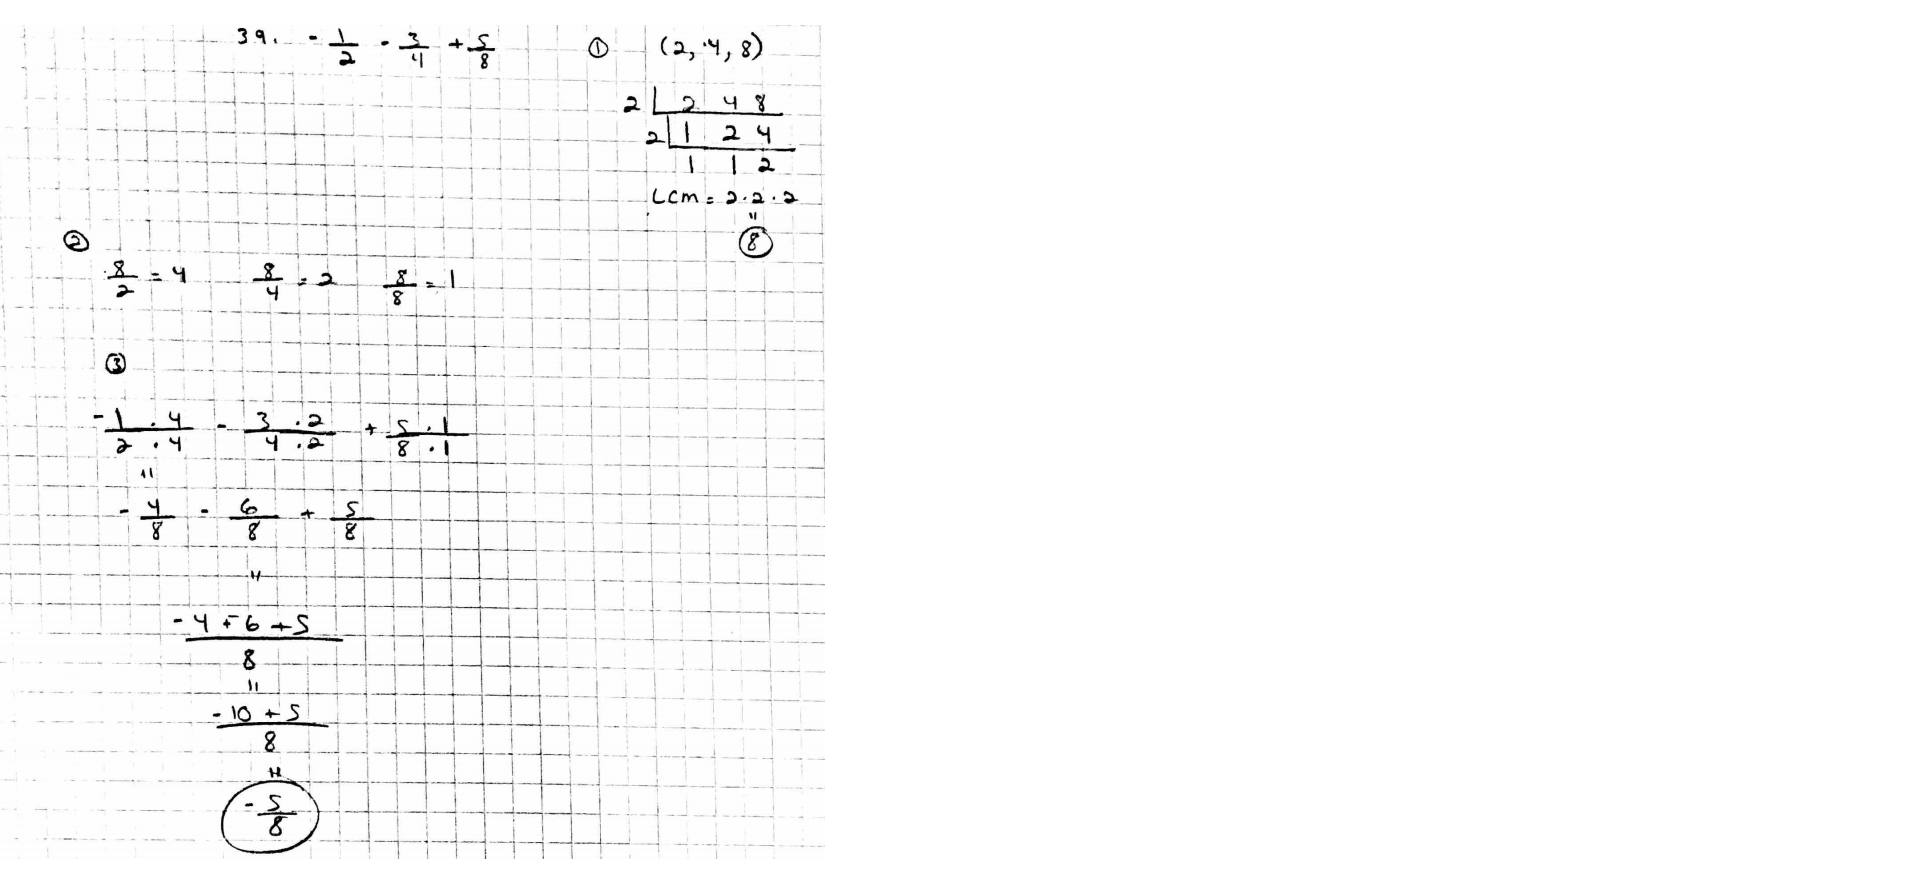 39. - 1/2 - 3/4 + 5/8
① (2, 4, 8)
2 | 2 4 8
2 | 1 2 4
1 1 2
LCM = 2·2·2
=
8
②
8/2 = 4   8/4 = 2   8/8 = 1
③
- 1·4/2·4 - 3·2/4·2 + 5·1/8·1
=
- 4/8 - 6/8 + 5/8
=
-4 + -6 + 5
8
=
-10 + 5
8
=
- 5/8